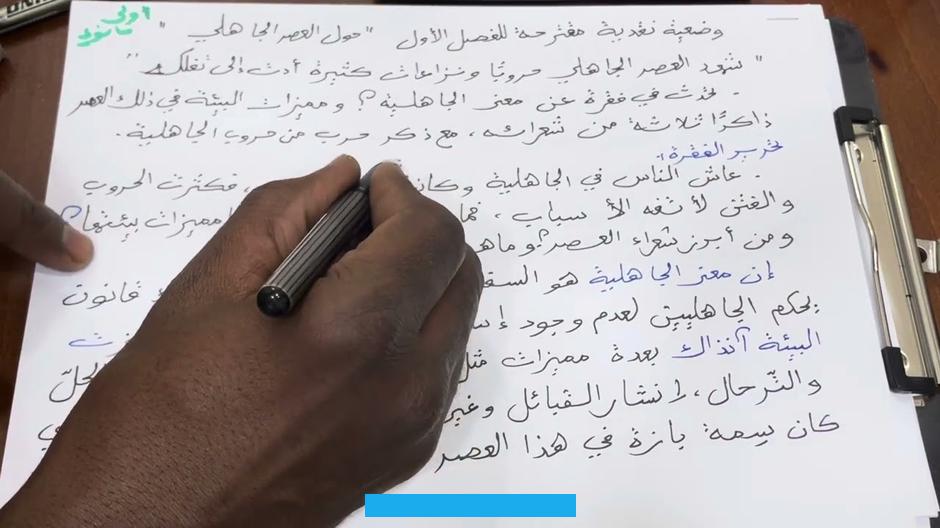 أولى ثانوي
وضعية نقدية مقترحة للفصل الأول "حول العصر الجاهلي"
" شهد العصر الجاهلي حروبًا ونزاعات كثيرة أدت إلى تفككه "
- تحدث في فقرة عن معنى الجاهلية؟ ومميزات البيئة في ذلك العصر
ذاكرًا ثلاثة من شعرائه، مع ذكر حرب من حروب الجاهلية.
تحرير الفقرة:
- عاش الناس في الجاهلية ، فكثرت الحروب
والفتن لأتفه الأسباب ، مميزات بيئتها؟
ومن أبرز شعراء العصر؟
إن معنى الجاهلية هو قانون
يحكم الجاهليين لعدم وجود
البيئة آنذاك بعدة مميزات مثل الحلّ
والتّرحال، انتشار القبائل
كان سمة بارزة في هذا العصر